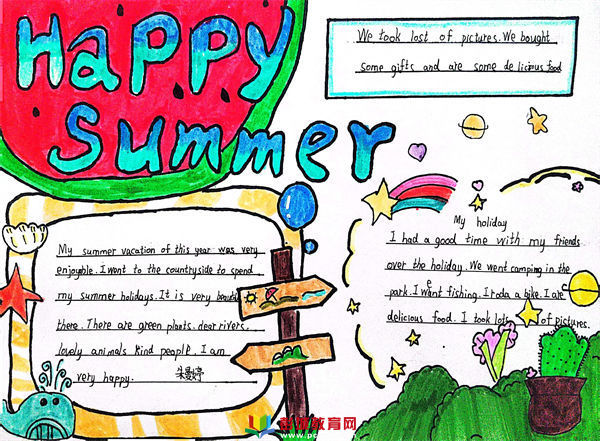 Happy
Summer
We took lost of pictures. We bought
some gifts and are some delicious food
My summer vacation of this year was very
enjoyable. I went to the countryside to spend
my summer holidays. It is very beauti
there. There are green plants, dear rivers,
lovely animals kind people. I am
very happy.
My holiday
I had a good time with my friends
over the holiday. We went camping in the
park. I went fishing. I roda a bike. I ate
delicious food. I took lots of pictures.
教育网